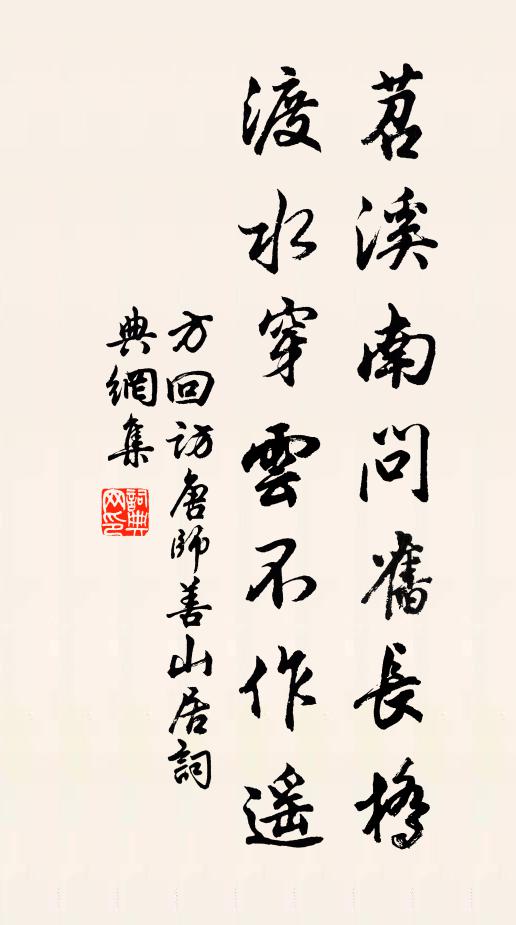 苕溪南問舊長橋
渡水穿雲不作遥
方回訪唐師善山居詞
典網集
詞典网印